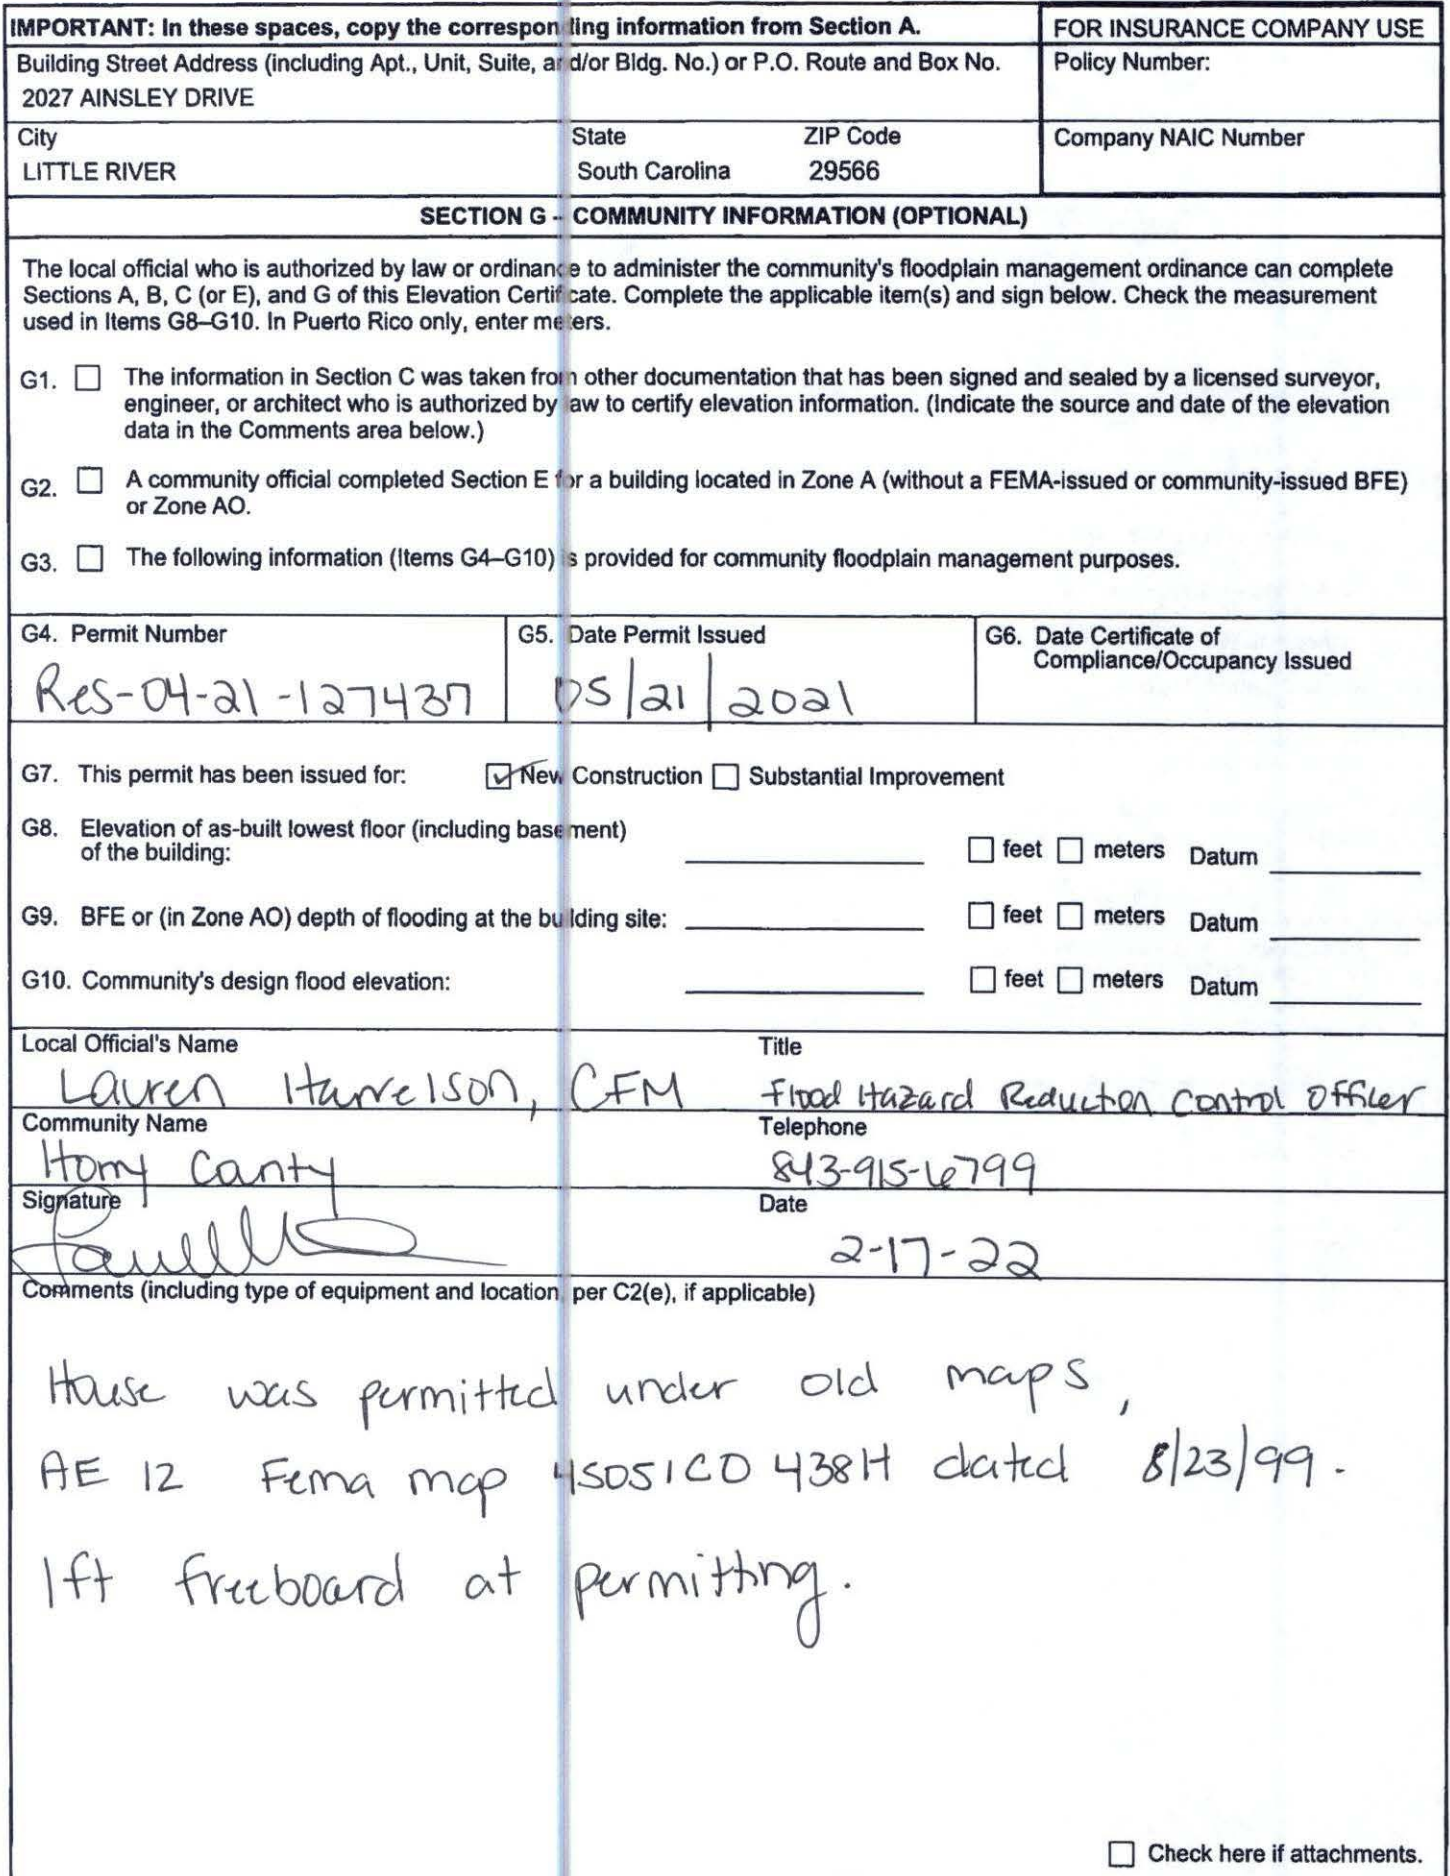 IMPORTANT: In these spaces, copy the corresponding information from Section A.
FOR INSURANCE COMPANY USE
Building Street Address (including Apt., Unit, Suite, and/or Bldg. No.) or P.O. Route and Box No.
2027 AINSLEY DRIVE
Policy Number:
City State ZIP Code
LITTLE RIVER South Carolina 29566
Company NAIC Number
SECTION G – COMMUNITY INFORMATION (OPTIONAL)
The local official who is authorized by law or ordinance to administer the community's floodplain management ordinance can complete
Sections A, B, C (or E), and G of this Elevation Certificate. Complete the applicable item(s) and sign below. Check the measurement
used in Items G8–G10. In Puerto Rico only, enter meters.
G1. The information in Section C was taken from other documentation that has been signed and sealed by a licensed surveyor,
engineer, or architect who is authorized by law to certify elevation information. (Indicate the source and date of the elevation
data in the Comments area below.)
G2. A community official completed Section E for a building located in Zone A (without a FEMA-issued or community-issued BFE)
or Zone AO.
G3. The following information (Items G4–G10) is provided for community floodplain management purposes.
G4. Permit Number
Res-04-21-127437
G5. Date Permit Issued
05/21/2021
G6. Date Certificate of
Compliance/Occupancy Issued
G7. This permit has been issued for: New Construction Substantial Improvement
G8. Elevation of as-built lowest floor (including basement)
of the building: feet meters Datum
G9. BFE or (in Zone AO) depth of flooding at the building site: feet meters Datum
G10. Community's design flood elevation: feet meters Datum
Local Official's Name Title
Lauren Harrelson, CFM Flood Hazard Reduction Control Officer
Community Name Telephone
Horry County 843-915-6799
Signature Date
2-17-22
Comments (including type of equipment and location, per C2(e), if applicable)
House was permitted under old maps,
AE 12 Fema map 45051C0 438H dated 8/23/99.
1ft freeboard at permitting.
Check here if attachments.